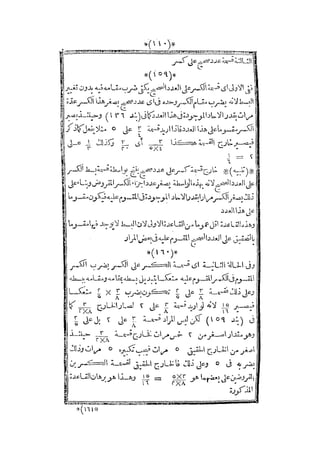 *(١١٠)*
الثالثة قسمة عدد صحيح على كسر
*(١٥٩)*
ففى الاولى اى قسمة الكسر على العدد الصحيح يكفى ضرب مقامه فيه بدون تغيير
البسط لانه بضرب مقام الكسر وحده فى اى عدد صحيح يصغر هذا الكسر عدة
مرات بقدر الاحاد الموجودة فى هذا العدد كما فى (بند ١٣٦) وحينئذ يصير
الكسر مقسوما على هذا العدد فاذا اريد قسمة ٢/٣ على ٥ مثلا يفعل كما ذكر
فيصير خارج القسمة هكذا
على
*(تنبيه)* خارج قسمة كسر على عدد صحيح بواسطة قسمة بسط الكسر
على العدد الصحيح لانه بهذه الواسطة يصغر عدد اجزاء الكسر المفروض وبناء على
ذلك يصغر الكسر مرارا بقدر الاحاد الموجودة فى المقسوم عليه فيكون مقسوما
على هذا العدد
وهذه القاعدة اقل عموما من القاعدة الاولى لان البسط لا يوجد فيها مقسوما
بالتحقيق على العدد الصحيح المقسوم عليه فى بعض المرار
*(١٦٠)*
وفى الحالة الثانية اى قسمة الكسر على الكسر يضرب الكسر
المقسوم فى الكسر المقسوم عليه منعكسا بتبديل بسطه بمقامه ومقامه ببسطه
وعلى ذلك قسمة
فيصير لانه لو اريد قسمة على ٢ لصار الخارج كما
فى (بند ١٥٩) لكن ليس المراد قسمة على ٢ بل على
وهو مقدار اصغر من ٢ خمس مرات فخارج قسمة حينئذ
اصغر من الخارج الحقيقى ٥ مرات فيجب تكبيره ٥ مرات وذلك
بضربه فى ٥ وعلى ذلك فالخارج الحقيقى لقسمة الكسرين
المفروضين على بعضهما هو وهذا هو برهان القاعدة
المذكورة
*(١٦١)*